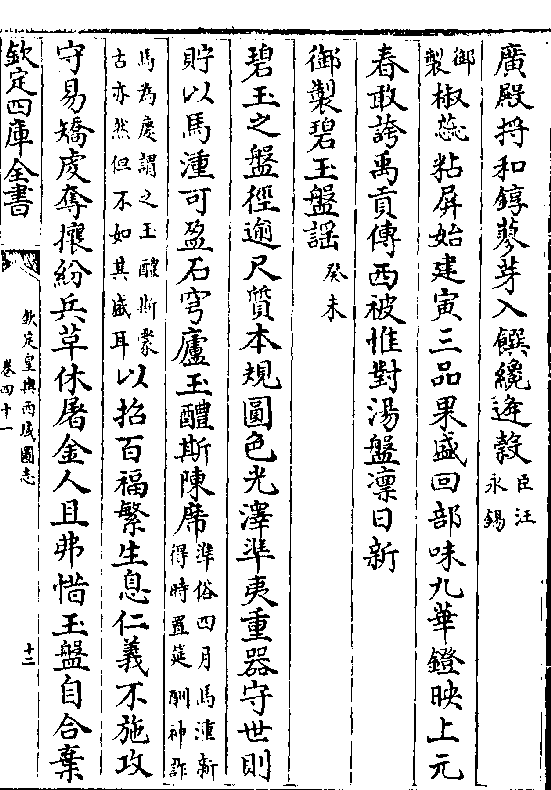 廣殿捋和錞蓼芽入饌纔逢㝅臣汪永錫
御製椒蕊粘屏始建寅三品果盛回部味九華鐙映上元
春敢誇禹貢傳西被惟對湯盤凛日新
御製碧玉盤謡癸未
碧玉之盤徑逾尺質本規圓色光澤準夷重器守世則
貯以馬湩可盈石穹廬玉醴斯陳席準俗四月馬湩新得時置筵酬神詐
馬為慶謂之玉醴斯蒙古亦然但不如其盛耳以招百福繁生息仁義不施攻
守易矯虔奪攘紛兵革休屠金人且弗惜玉盤自合棄
欽定四庫全書
欽定皇輿西域圖志
卷四十一
十二